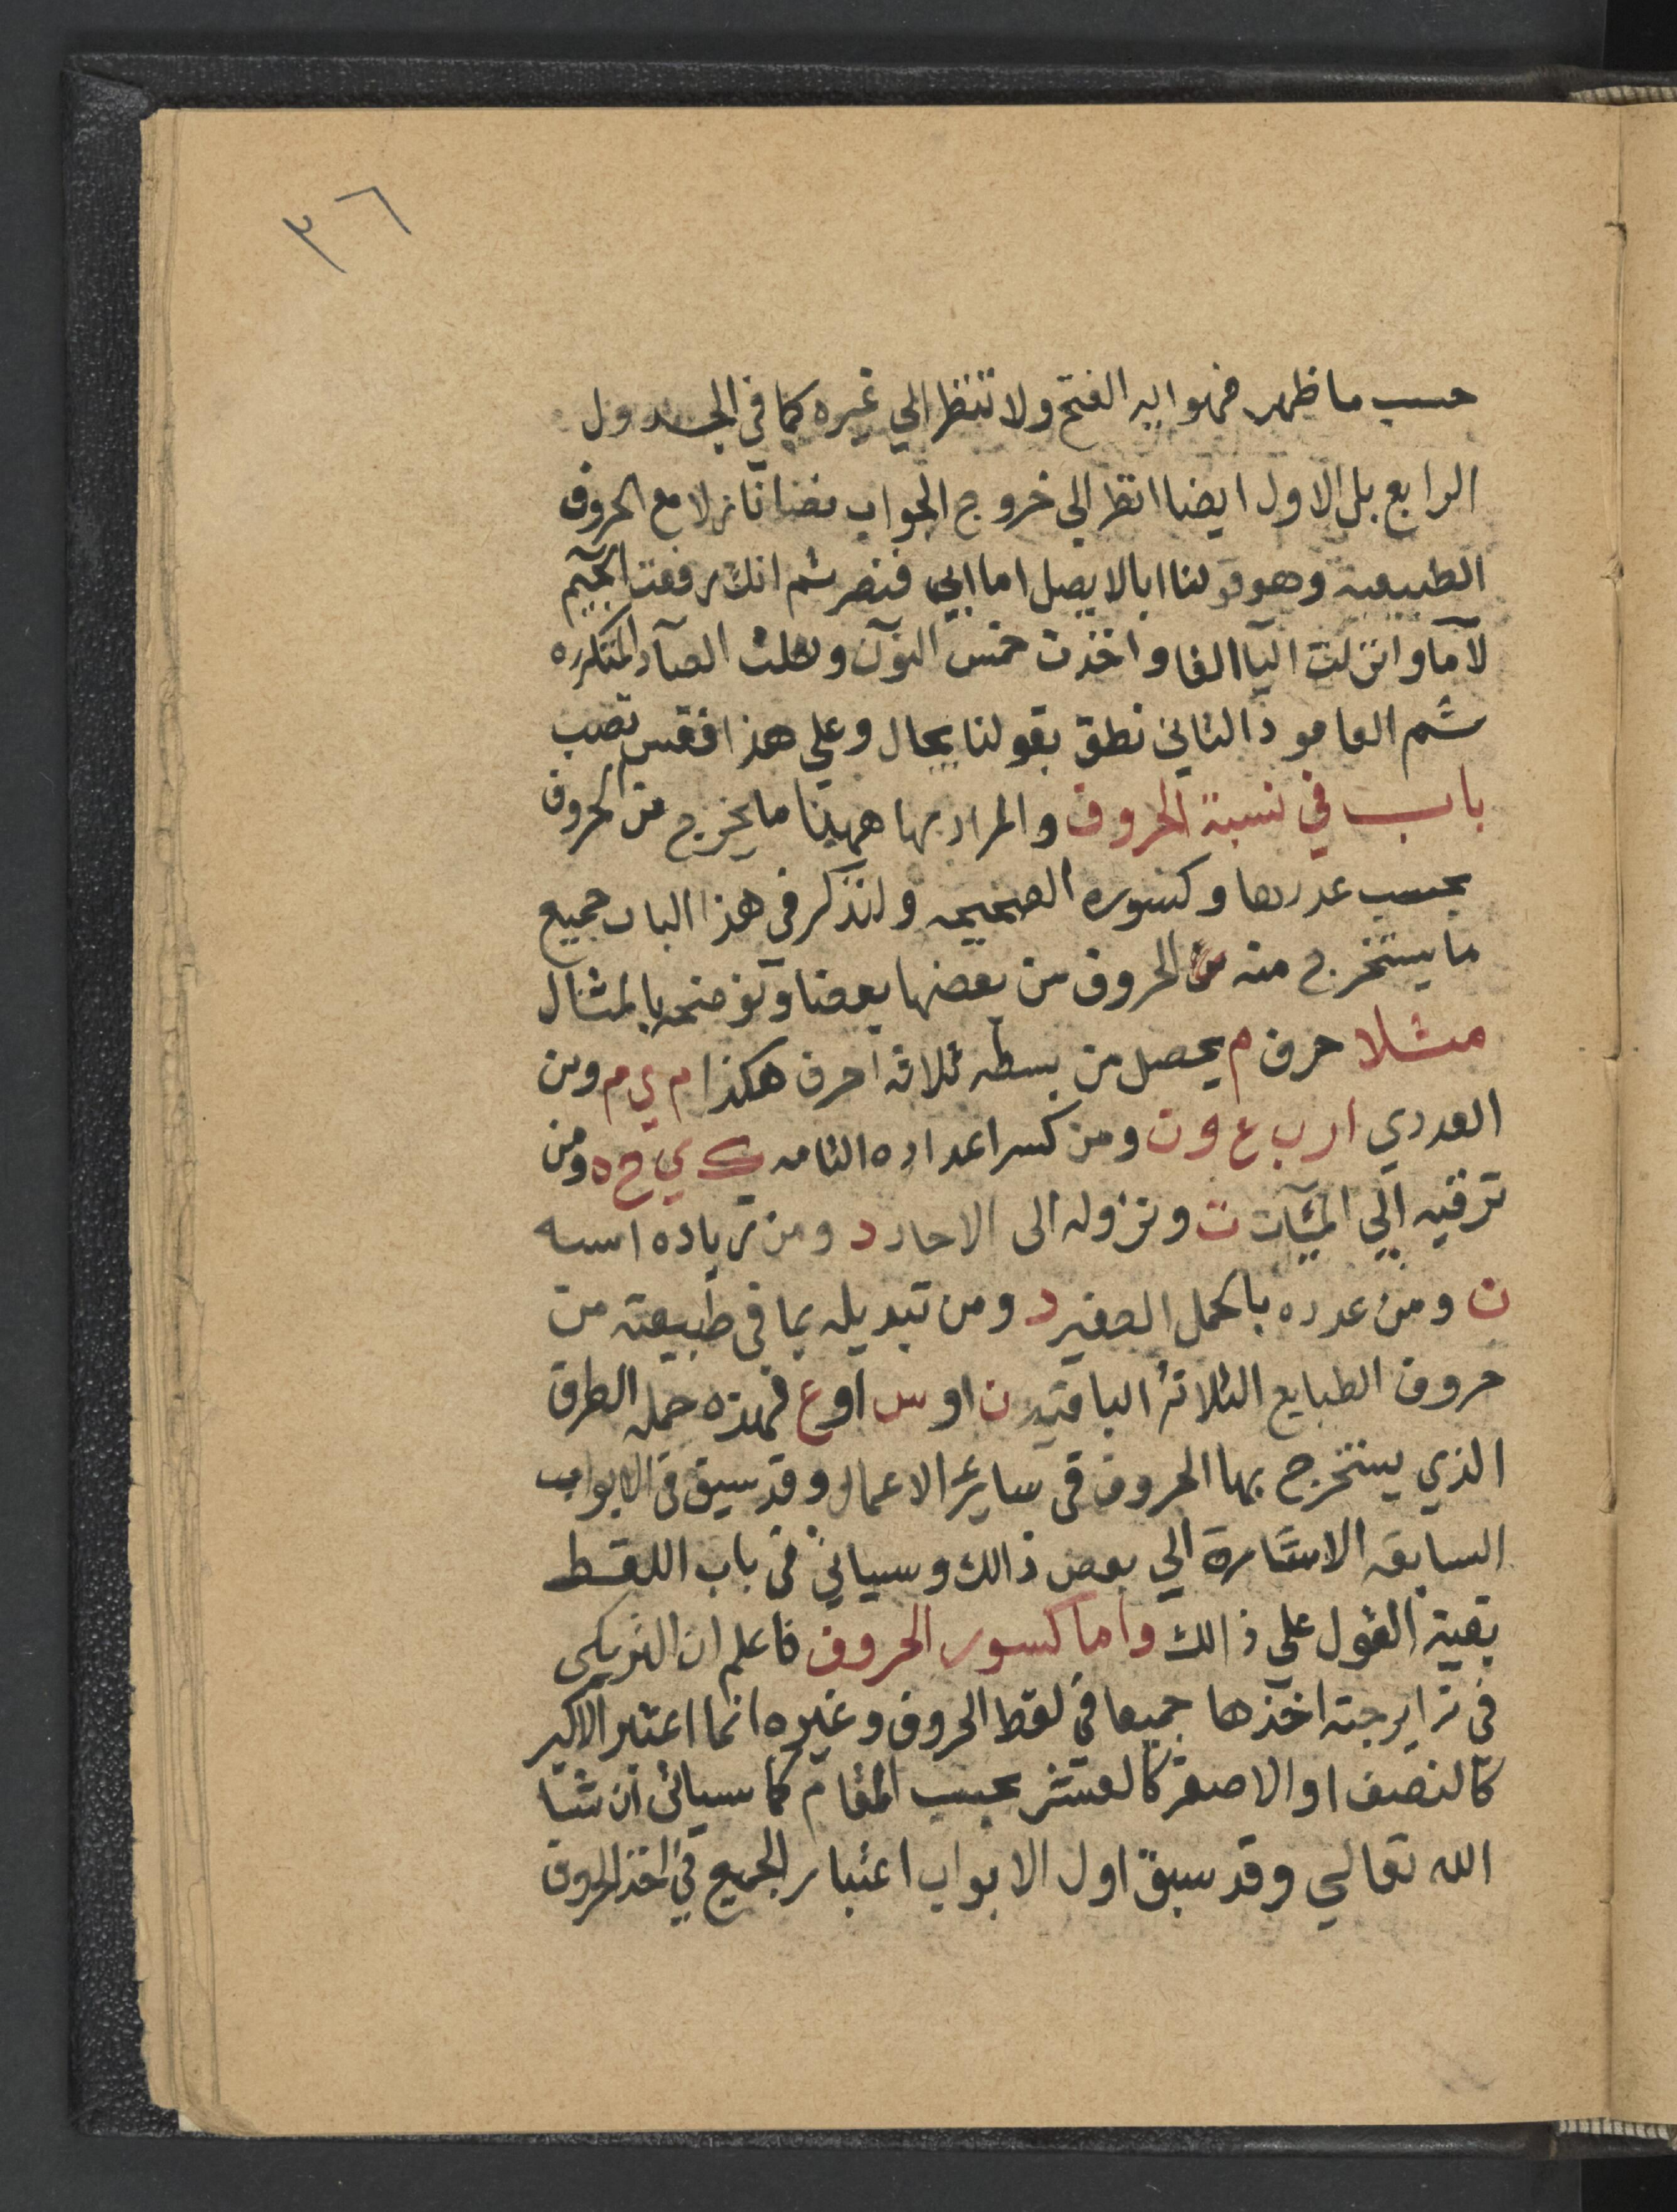 ٣٦
حسب ما ظهر فهو اليه الفتح ولا تنظر الي غيره كما في الجدول
الرابع بل الاول ايضا انظر الي خروج الجواب نازلا مع الحروف
الطبيعيه وهو قولنا ابالا يصل اما ابي فنصر ثم انك رفعت الجيم
لاما وانزلت اليا الفا واخذت خمس النون وثلث الصاد المتكرره
شم العامود الثاني نطق بقولنا بحال وعلي هذا فقس تصب
باب في نسبة الحروف والمراد بها ههنا ما يخرج من الحروف
بحسب عددها وكسوره الصحيحه ولنذكر في هذا الباب جميع
ما يستخرج منه من الحروف من بعضها بعضا ونوضحه بالمثال
مثلا حرف م يحصل من بسطه ثلاثه احرف هكذا م ي م ومن
العددي ا ر ب ع و ن ومن كسر اعداده التامه ك ي ح ه ومن
ترقيه الي الميآت ت ونزوله الى الاحاد د ومن زياده اسه
ن ومن عدده بالجمل الصغير د ومن تبديله بما في طبيعته من
حروف الطبايع الثلاثة الباقيه ن او س او ع فهذه جمله الطرق
الذي يستخرج بها الحروف في ساير الاعمال وقد سبق في الابواب
السابقه الاشارة الي بعض ذالك وسياتي في باب اللقط
بقية القول علي ذالك واما كسور الحروف فاعلم ان
في زايرجته اخذها جميعا في لقط الحروف وغيره انما اعتبر الاكبر
كالنصف او الاصغر كالعشر بحسب المقام كما سياتي ان شا
الله تعالي وقد سبق اول الابواب اعتبار الجميع في اخذ الحروف